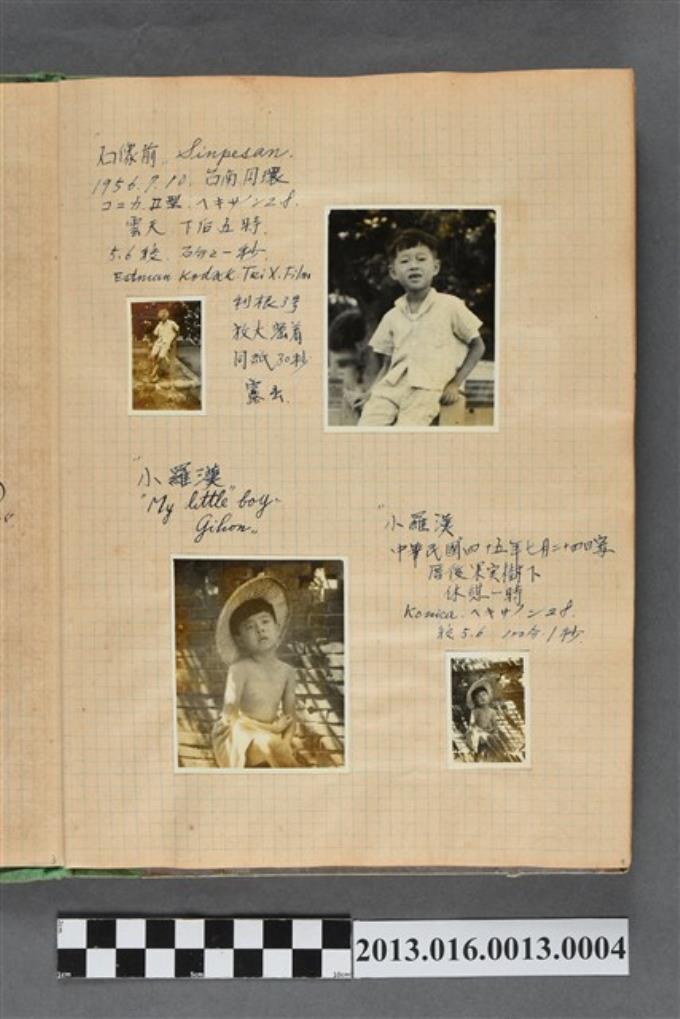 石像前, Sinpesan.
1956.9.10. 台南同環
コニカ.II型. ヘキサノン28.
雲天 下伯五時.
5.6絞. 百分之一秒.
Estman Kodak. Tri X. Film
利根3号
放大密着
同紙30秒
露出.
"小羅漢"
"My little boy.
Gihon."
"小羅漢
中華民國四十五年七月二十四日寫
厝後果実樹下
休憩一時
Konica. ヘキサノン28.
絞5.6 100分/1秒.
1cm
5cm
10cm
2013.016.0013.0004